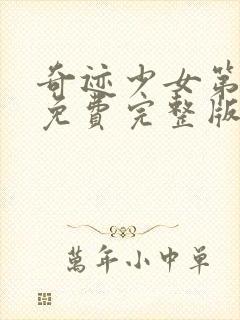 奇迹少女第
免费完整版
萬年小中单